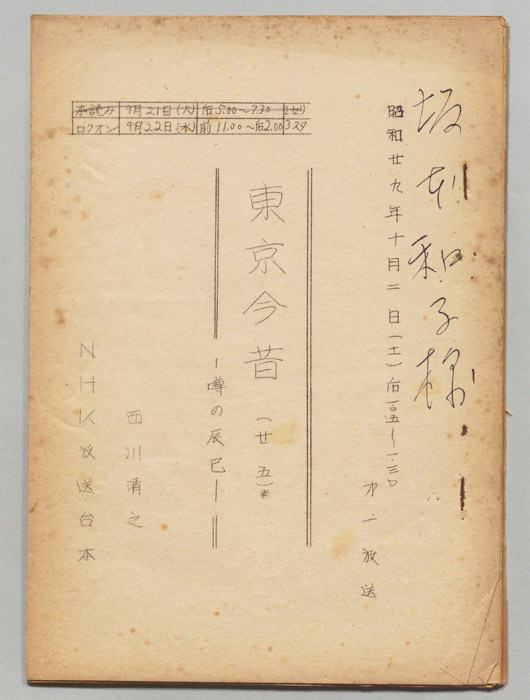 本読み 9月21日(火) 后5.00~7.30
ロクオン 9月22日(水) 前11.00~后2.00 3スタ
坂本和子様
昭和廿九年十月二日(土)后一・〇五~一・三〇
第一放送
東京今昔(廿五)
―噂の辰巳―
西川清之
NHK放送台本